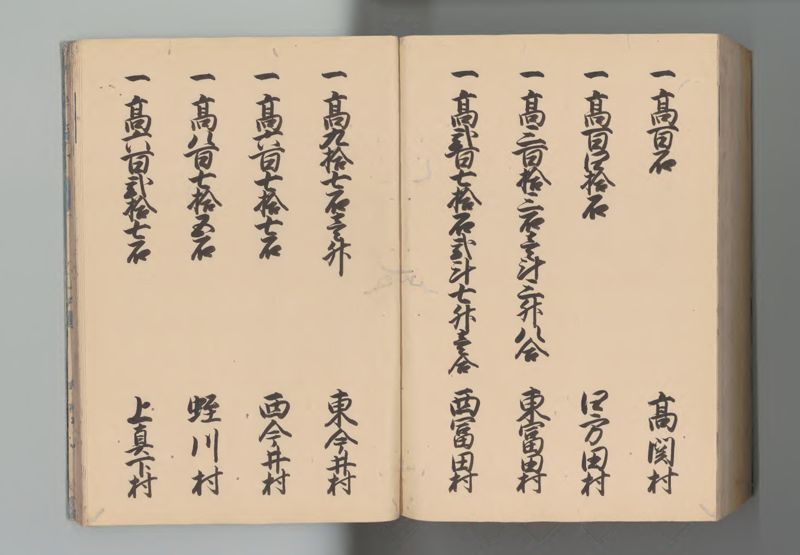 一高百石 高関村
一高百四拾石 四方田村
一高三百拾三石壱斗三升八合 東冨田村
一高弐百七拾石弐斗七升壱合 西冨田村
一高九拾七石壱升 東今井村
一高六百七拾七石 西今井村
一高八百七拾五石 蛭川村
一高六百弐拾七石 上真下村